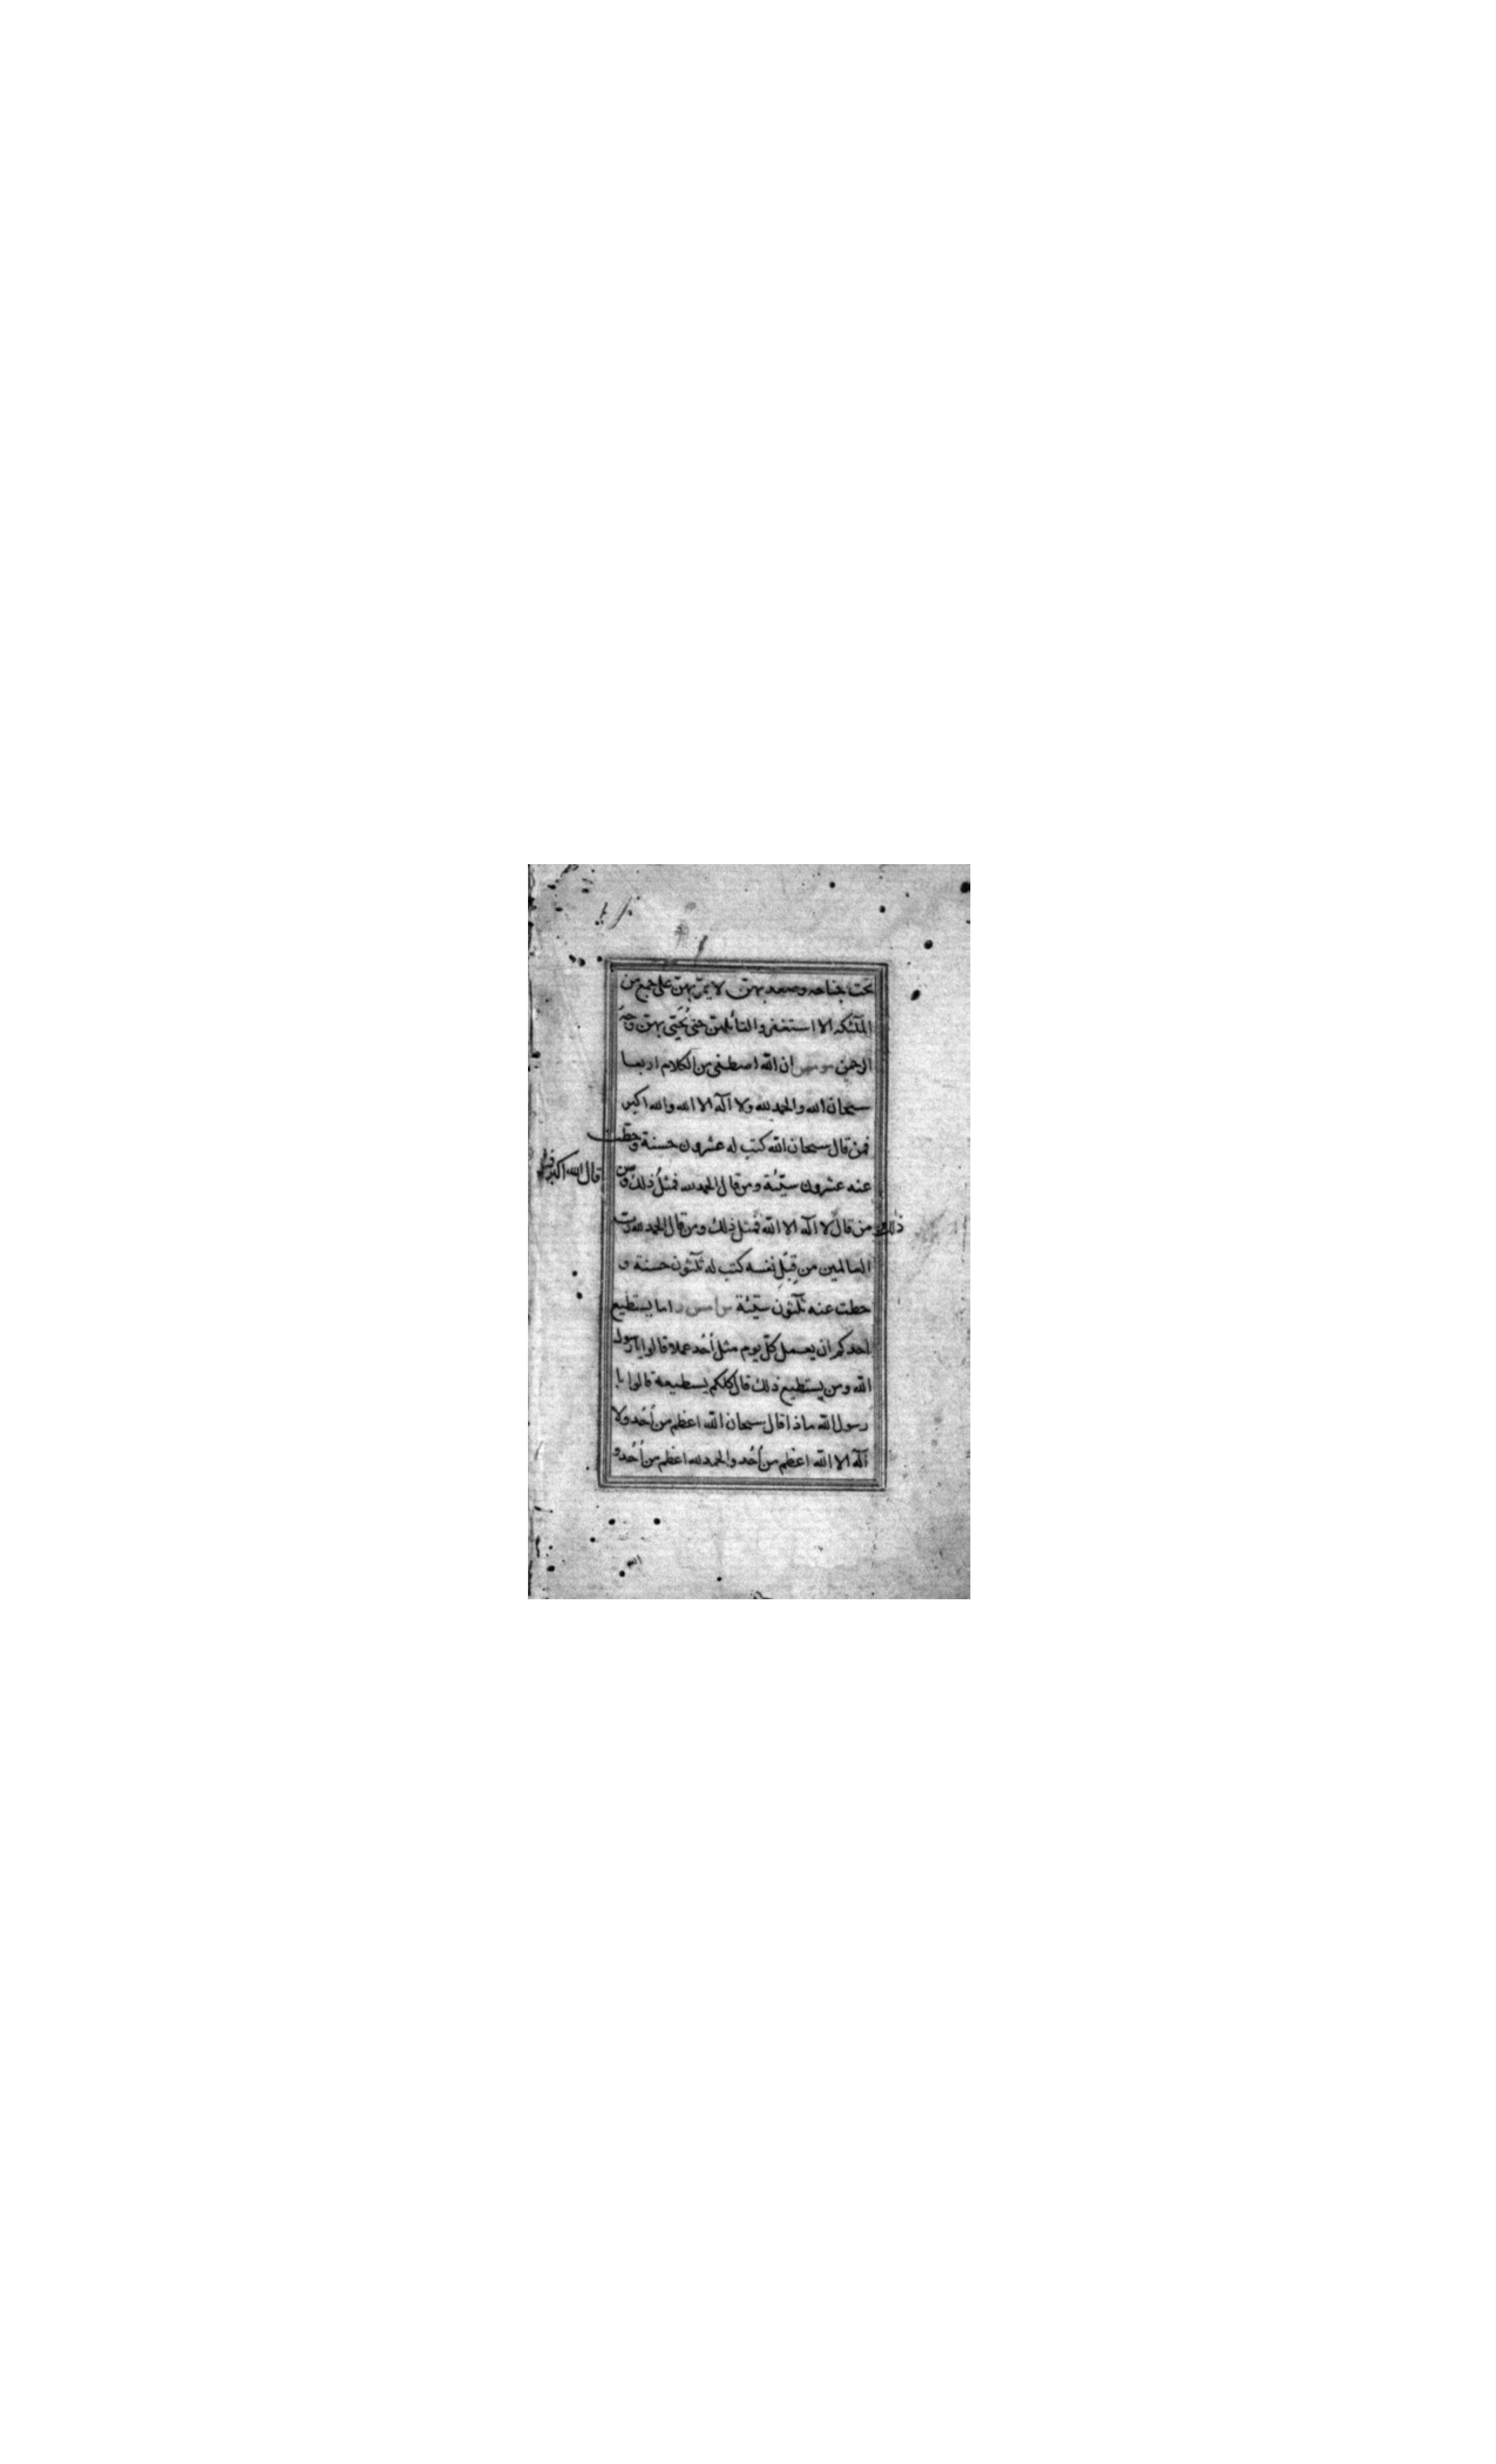 تحت جناحه وصعد بهن لا يمر بهن على جمع من
الملٰئكة الا استغفروا لقائلهن حتى يُحَيّى بهن وجه
الرحمن مو مس ان الله اصطفى من الكلام اربعا
سبحان الله والحمد لله ولا اله الا الله والله اكبر
فمن قال سبحان الله كتب له عشرون حسنة وحطت
عنه عشرون سيّئة ومن قال الحمد لله فمثلُ ذلك ومن
قال الله اكبر فمثل
ذلك ومن قال لا اله الا الله فمثل ذلك ومن قال الحمد لله رب
العالمين من قِبَلِ نفسه كتب له ثلٰثون حسنة و
حطت عنه ثلٰثون سيّئة س ا مس ر اما يستطيع
احدكم ان يعمل كلّ يوم مثل اُحُد عملا قالوا يا رسول
الله ومن يستطيع ذلك قال كلكم يستطيعه قالوا يا
رسول الله ماذا قال سبحان الله اعظم من اُحُد ولا
اله الا الله اعظم من اُحُد والحمد لله اعظم من اُحُد و
الله